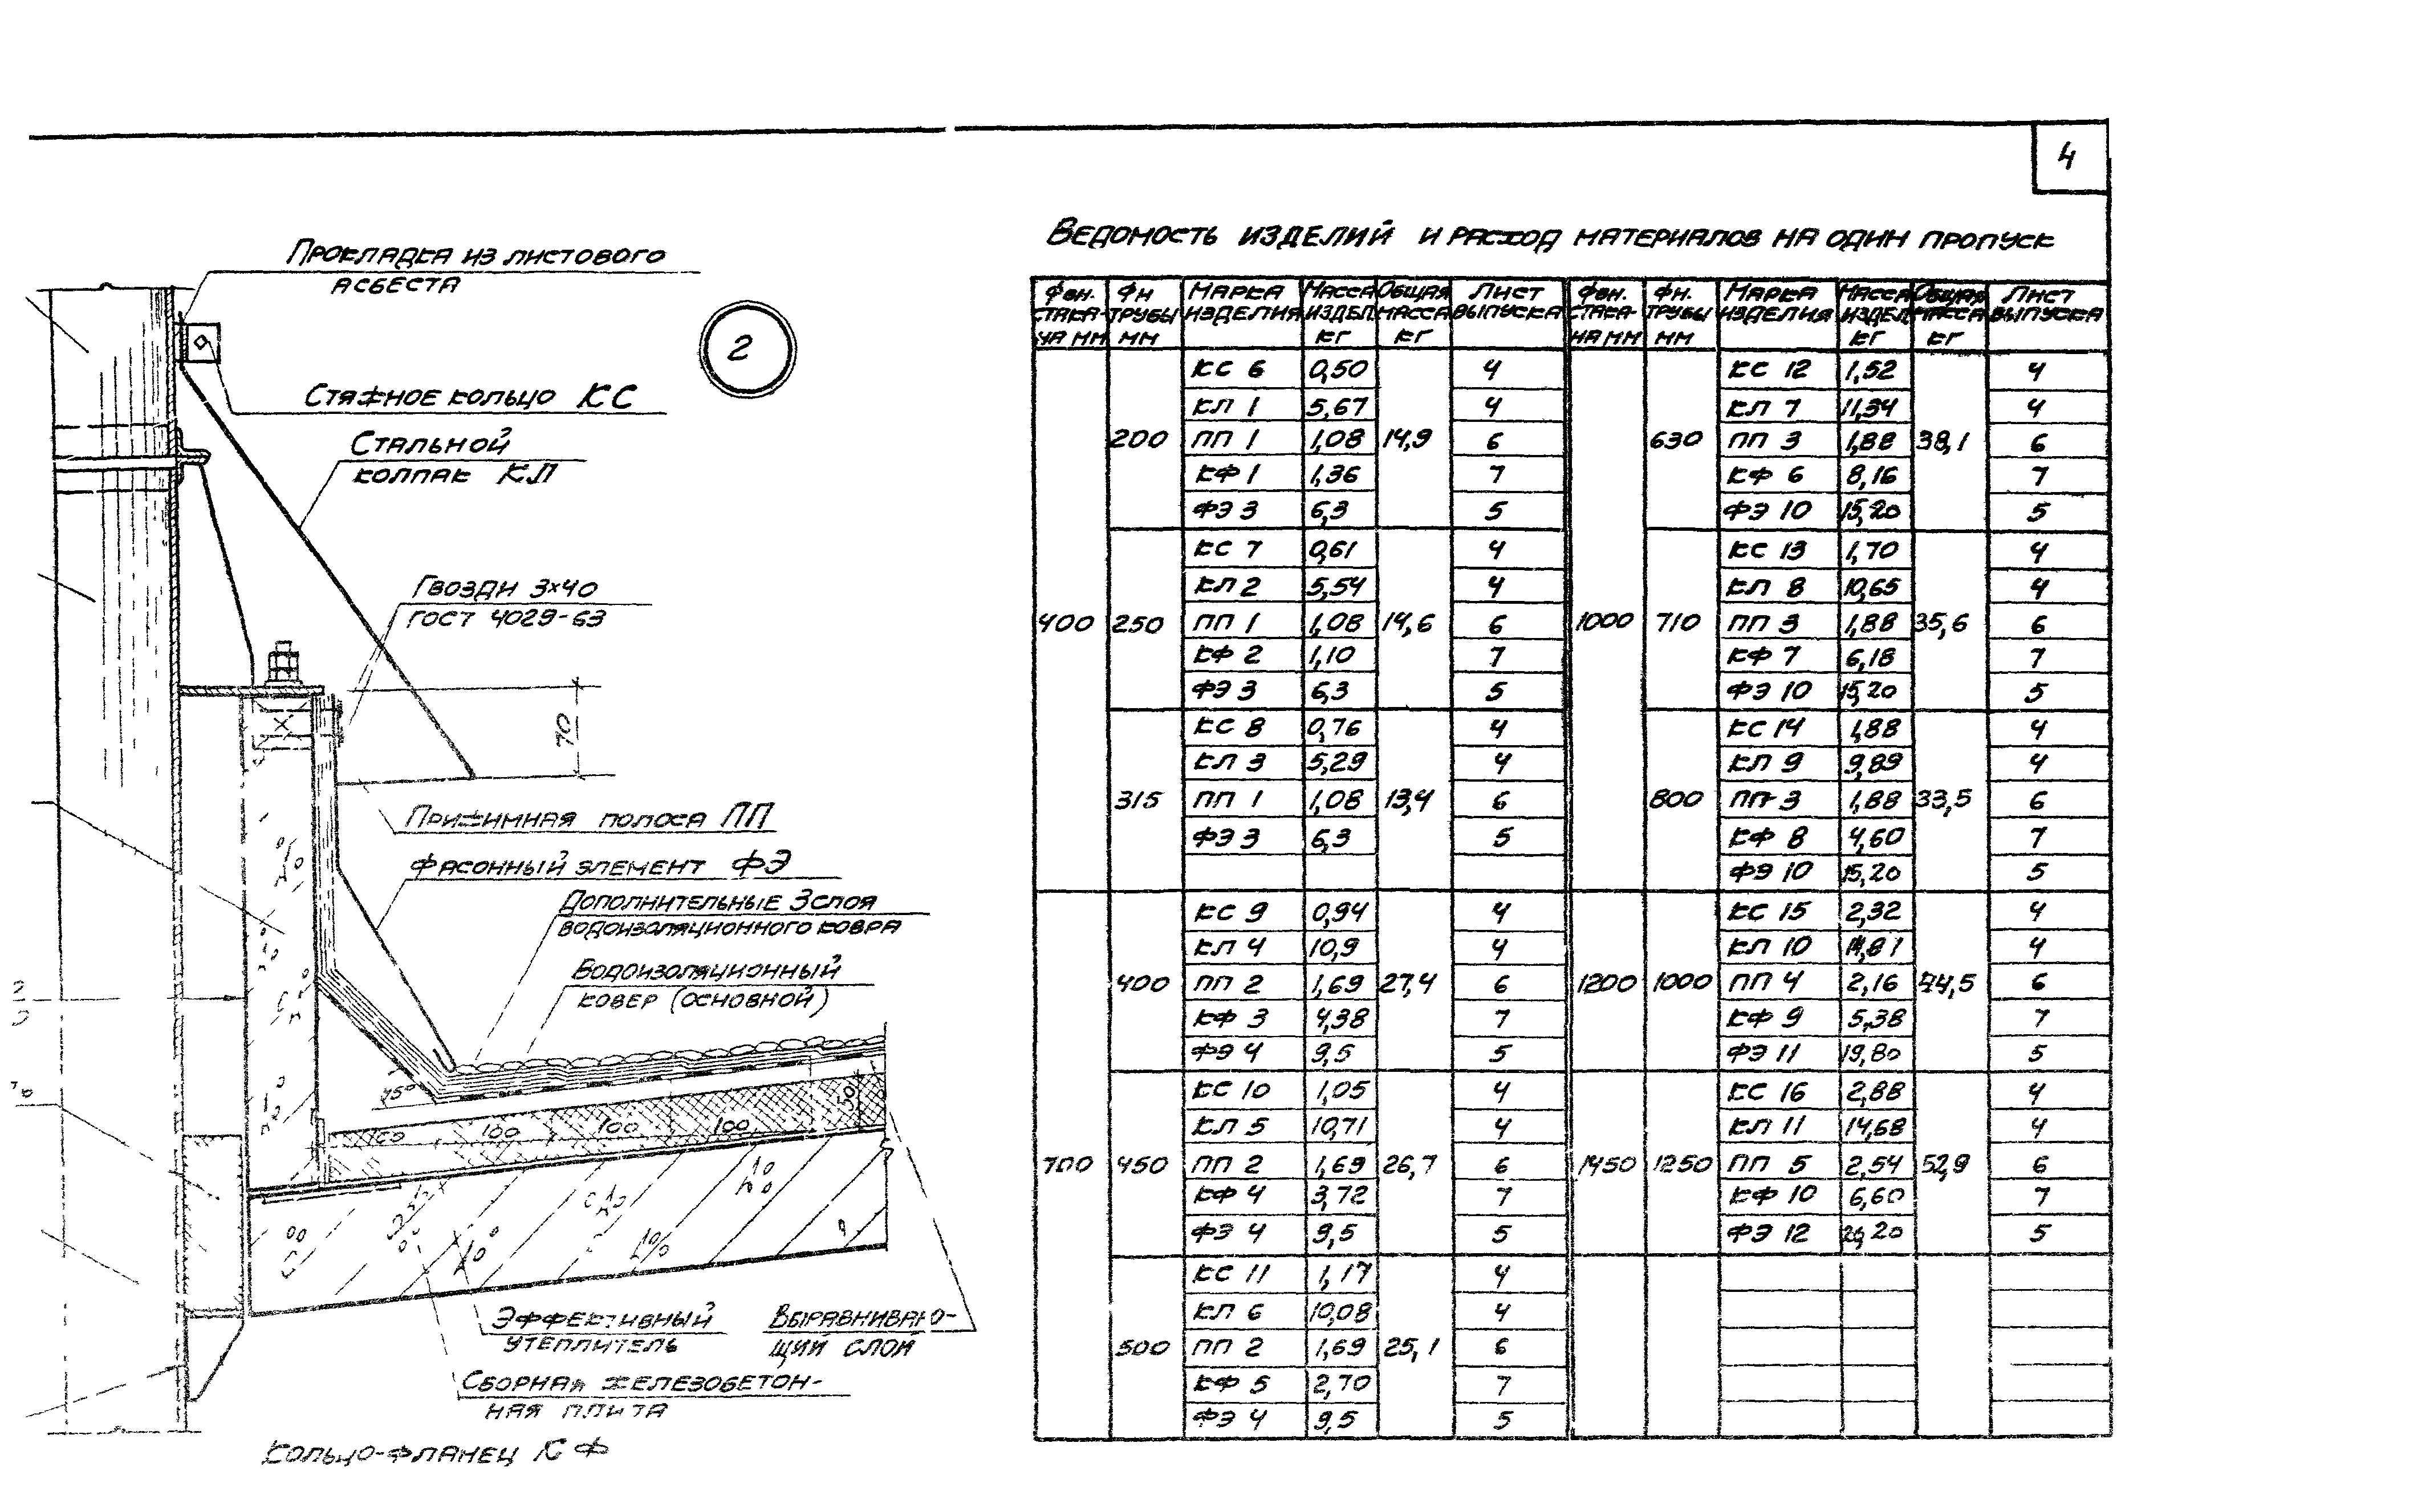 4
Прокладка из листового
асбеста
2
Стяжное кольцо КС
Стальной
колпак КЛ
Гвозди 3×40
ГОСТ 4029-63
70
Прижимная полоса ПП
Фасонный элемент ФЭ
Дополнительные 3 слоя
водоизоляционного ковра
Водоизоляционный
ковер (основной)
45°
50
100 100 100
Эффективный
утеплитель
Выравниваю-
щий слой
Сборная железобетон-
ная плита
Кольцо-фланец КФ
Ведомость изделий и расход материалов на один пропуск
Фвн. стака-на мм | Фн трубы мм | Марка изделия | Масса издел. кг | Общая масса кг | Лист выпуска | Фвн. стака-на мм | Фн. трубы мм | Марка изделия | Масса издел. кг | Общая масса кг | Лист выпуска
КС 6 0,50 4 КС 12 1,52 4
КЛ 1 5,67 4 КЛ 7 11,34 4
200 ПП 1 1,08 14,9 6 630 ПП 3 1,88 38,1 6
КФ 1 1,36 7 КФ 6 8,16 7
ФЭ 3 6,3 5 ФЭ 10 15,20 5
КС 7 0,61 4 КС 13 1,70 4
КЛ 2 5,54 4 КЛ 8 10,65 4
400 250 ПП 1 1,08 14,6 6 1000 710 ПП 3 1,88 35,6 6
КФ 2 1,10 7 КФ 7 6,18 7
ФЭ 3 6,3 5 ФЭ 10 15,20 5
КС 8 0,76 4 КС 14 1,88 4
КЛ 3 5,29 4 КЛ 9 9,89 4
315 ПП 1 1,08 13,4 6 800 ПП 3 1,88 33,5 6
ФЭ 3 6,3 5 КФ 8 4,60 7
ФЭ 10 15,20 5
КС 9 0,94 4 КС 15 2,32 4
КЛ 4 10,9 4 КЛ 10 14,81 4
400 ПП 2 1,69 27,4 6 1200 1000 ПП 4 2,16 44,5 6
КФ 3 4,38 7 КФ 9 5,38 7
ФЭ 4 9,5 5 ФЭ 11 19,80 5
КС 10 1,05 4 КС 16 2,88 4
КЛ 5 10,71 4 КЛ 11 14,68 4
700 450 ПП 2 1,69 26,7 6 1450 1250 ПП 5 2,54 52,9 6
КФ 4 3,72 7 КФ 10 6,60 7
ФЭ 4 9,5 5 ФЭ 12 26,20 5
КС 11 1,17 4
КЛ 6 10,08 4
500 ПП 2 1,69 25,1 6
КФ 5 2,70 7
ФЭ 4 9,5 5